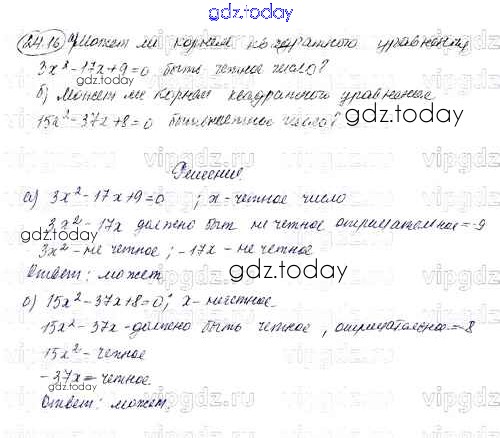 gdz.today
24.16 а) Может ли корнем квадратного уравнения
3x² - 17x + 9 = 0 быть четное число?
gdz.today
б) Может ли корнем квадратного уравнения
15x² - 37x + 8 = 0 быть нечетное число?
gdz.today
Решение.
а) 3x² - 17x + 9 = 0 ; x - четное число
3x² - 17x должно быть не четное отрицательное = -9
3x² - не четное ; -17x - не четное
Ответ: может
gdz.today
б) 15x² - 37x + 8 = 0; x - нечетное.
15x² - 37x - должно быть четное, отрицательное = -8
15x² - четное
-37x - четное.
Ответ: может.
gdz.today